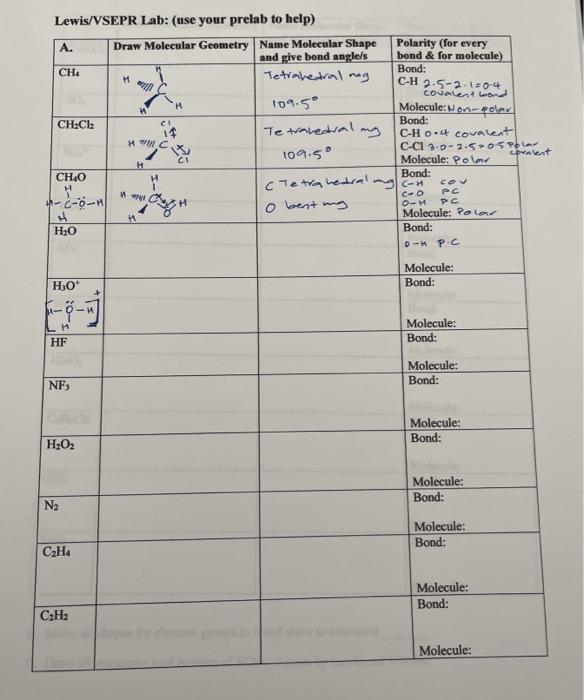 Lewis/VSEPR Lab: (use your prelab to help)
A. Draw Molecular Geometry Name Molecular Shape and give bond angle/s Polarity (for every bond & for molecule)
CH₄
H
H C H
H
Tetrahedral mg
109.5°
Bond:
C-H 2.5-2.1=0.4
covalent bond
Molecule: Non-polar
CH₂Cl₂
Cl
H C
Cl
H
Tetrahedral mg
109.5°
Bond:
C-H 0.4 covalent
C-Cl 3.0-2.5=0.5 Polar
covalent
Molecule: Polar
CH₄O
H
H-C-Ö-H
H
H
H C H
H O
C Tetrahedral mg
O bent mg
Bond:
C-H cov
C-O PC
O-H PC
Molecule: Polar
H₂O
Bond:
O-H P.C
Molecule:
H₃O⁺
+
[H-Ö-H]
H
Bond:
Molecule:
HF
Bond:
Molecule:
NF₃
Bond:
Molecule:
H₂O₂
Bond:
Molecule:
N₂
Bond:
Molecule:
C₂H₄
Bond:
Molecule:
C₂H₂
Bond:
Molecule: